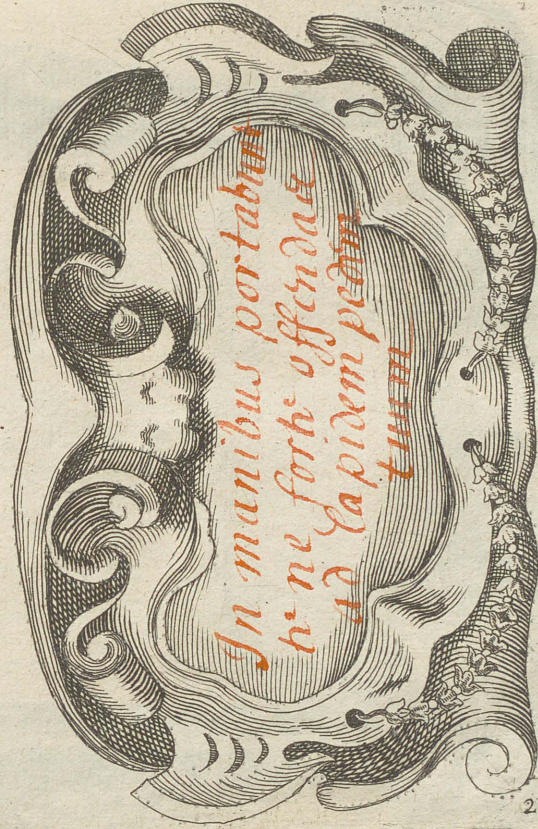 In manibus portabunt
te ne forte offendas
ad lapidem pedem
tuum
2